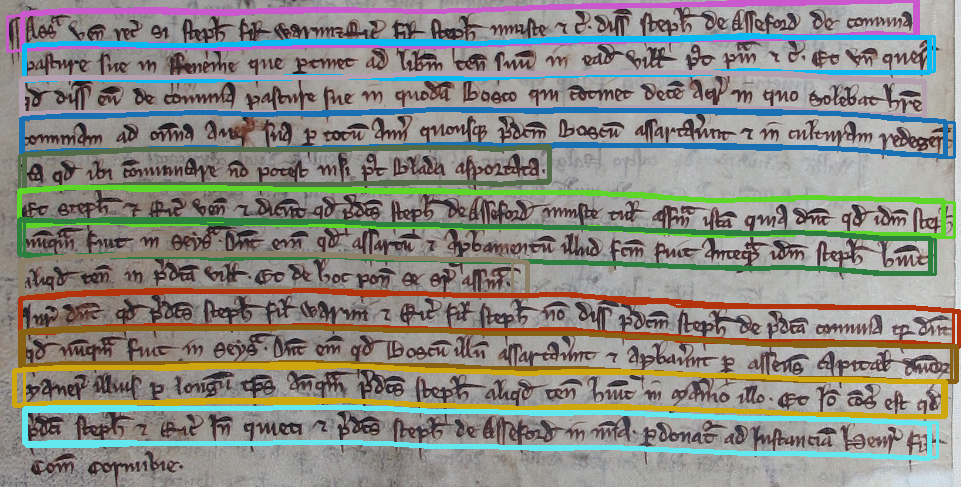 Assaᵃ ven̄ rec̄ si steph̄ fil̄ warini ⁊ Ric̄ fil̄ steph̄ iniuste ⁊ c̄. diss̄ steph̄ de Asseford de comuna
pasture sue in que ptinet ad lib̄m ten̄ suū in ead vill̄ p̄t p̄m̄ ⁊ c̄. Et vn̄ querit̄
qd diss̄ eū de comuna pasture sue in quodā Bosco qui cōtinet decē acr̄ in quo solebat h̄re
comunam ad om̄ia aueria sua p totū Annū quousq p̄dcm̄ Boscū assartauer̄t ⁊ in culturam redeger̄t
Ita qd ibi cōmunicare nō potest nisi p̄t Blada asportata.
Et Steph̄ ⁊ Ric̄ ven̄ ⁊ dicūt qd p̄dcs̄ steph̄ de Asseford iniuste tulit assam̄ istā quia dn̄t qd idm̄ steph̄
nūqm̄ fuit in seysᵃ. Dn̄t em̄ qd assartū ⁊ Apbamentū illud fcm̄ fuit Antequᵃ idm̄ steph̄ h̄uit
aliqd ten̄ in p̄dcā vill̄. Et de hoc pon̄t se sup assam̄.
Iur̄ dn̄t qd p̄dcs̄ steph̄ fil̄ warini ⁊ Ric̄ fil̄ steph̄ nō diss̄ p̄dcm̄ steph̄ de p̄dcā comuna qr dn̄t
qd nūqm̄ fuit in seysᵃ. Dn̄t em̄ qd Boscū illū assartauer̄t ⁊ apbauer̄t p assensū capital̄ dn̄or
Maner̄ illius p longū tp̄s Anqm̄ p̄dcs̄ steph̄ aliqd ten̄ h̄uit in Man̄io illo. Et Iō cōs̄ est qd
p̄dcī steph̄ ⁊ Ric̄ In̄ quieti ⁊ p̄dcs̄ steph̄ de Asseford in mīa. pdonatᵃ ad Instanciā Henr̄ fil̄
Com̄ Cornubie.